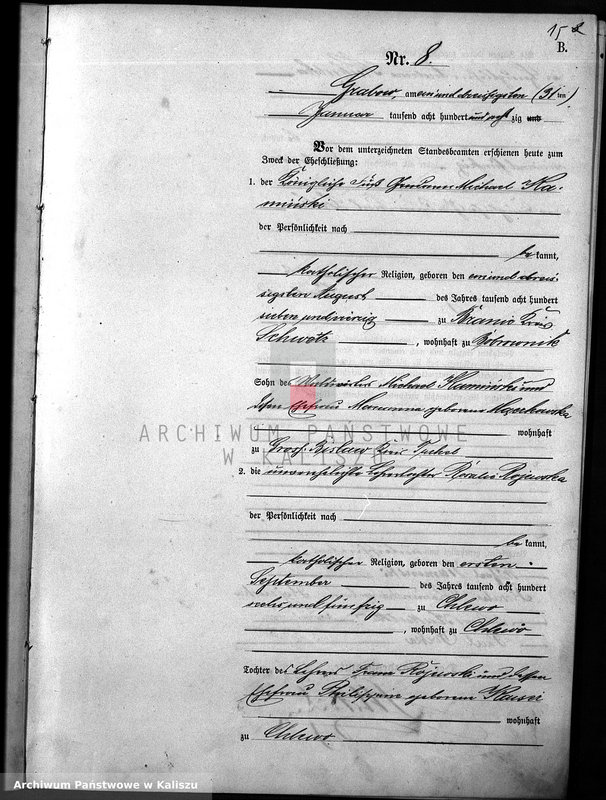 15
B.
Nr. 8.
Grabow, am ein und dreißigsten (31ten)
Januar tausend acht hundert und acht zig und
Vor dem unterzeichneten Standesbeamten erschienen heute zum
Zweck der Eheschließung:
1. der Königliche Michael Ka-
minski
der Persönlichkeit nach
be kannt,
katholischer Religion, geboren den ein und dreis-
sigsten August des Jahres tausend acht hundert
sieben und vierzig zu Kreis
Schwetz, wohnhaft zu Bobrownik
Sohn des Michael Kaminski und
dessen Ehefrau Marianna geborene
wohnhaft
zu Gross Bislaw Kreis Tuchel
2. die unverehelichte Lehrertochter Rosalie Rojewska
der Persönlichkeit nach
be kannt,
katholischer Religion, geboren den ersten
September des Jahres tausend acht hundert
sechs und fünfzig zu Chlewo
, wohnhaft zu Chlewo
Tochter des Lehrers Franz Rojewski und dessen
Ehefrau geborene
wohnhaft
zu Chlewo
ARCHIWUM PAŃSTWOWE
W KALISZU
Archiwum Państwowe w Kaliszu